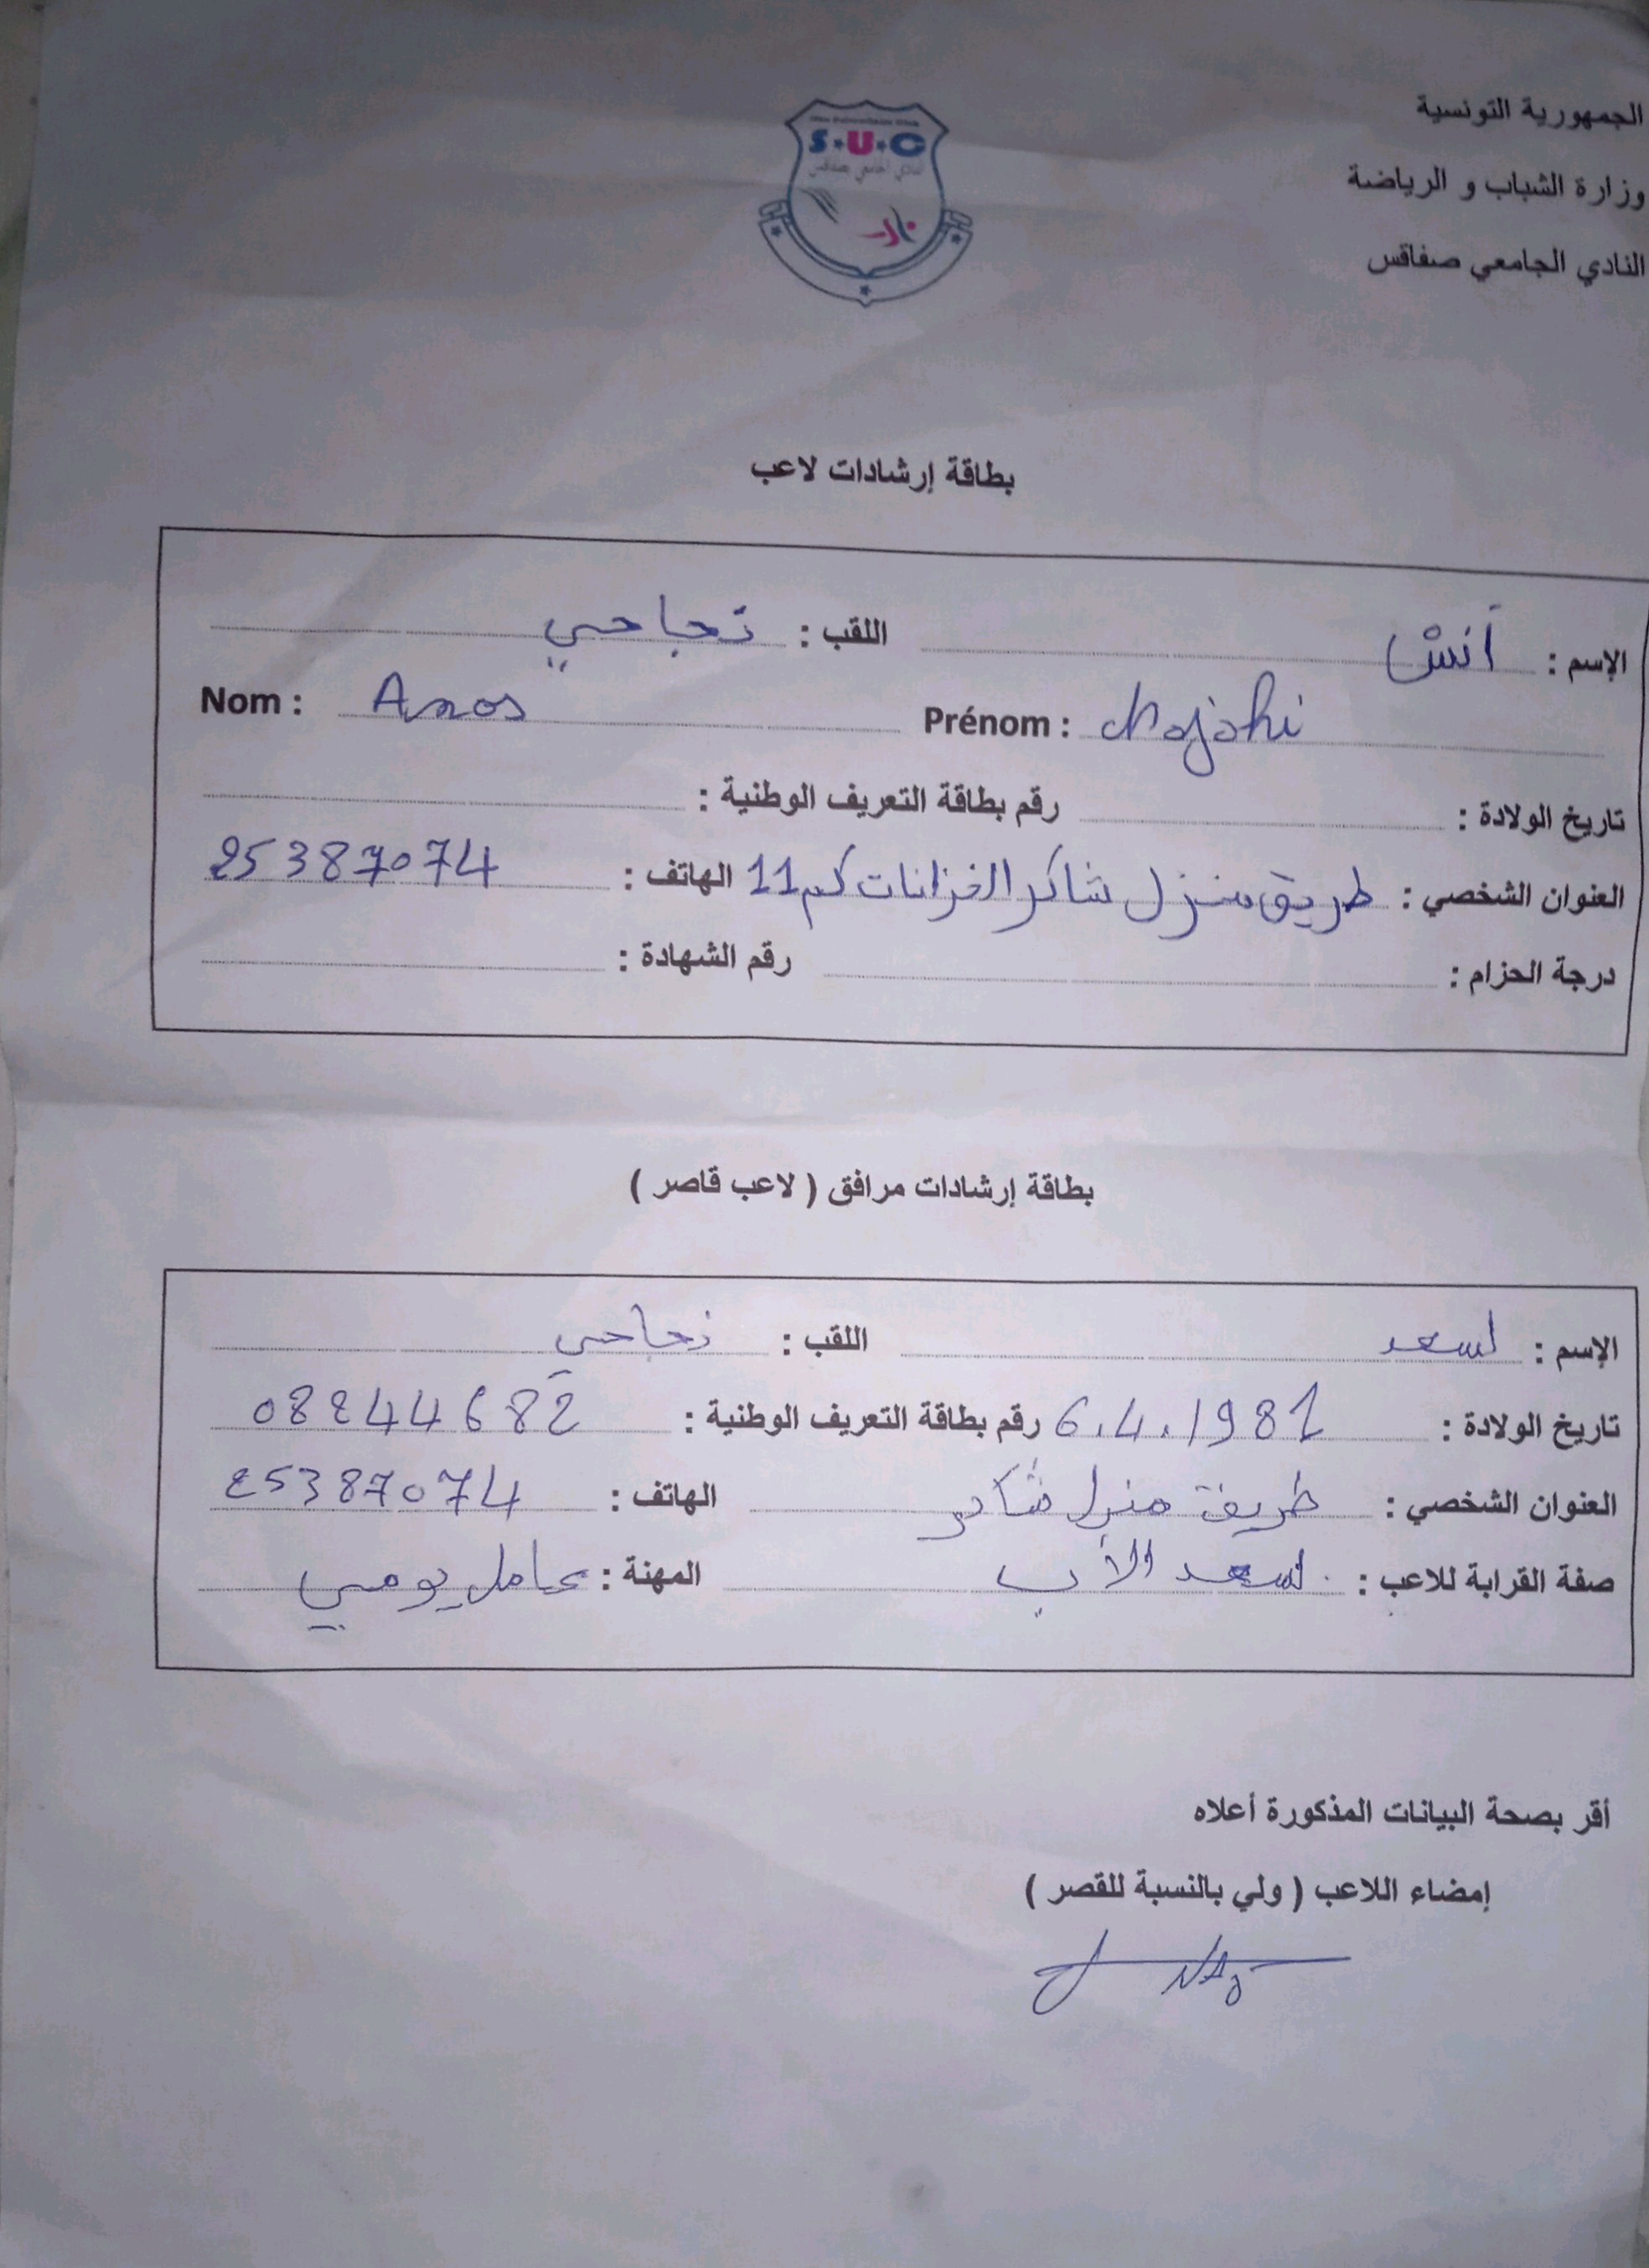 الجمهورية التونسية
وزارة الشباب و الرياضة
النادي الجامعي صفاقس
S*U*C
النادي الجامعي بصفاقس
بطاقة إرشادات لاعب
الإسم : أنس اللقب : نجاحي
Nom : Anos Prénom : Najahi
تاريخ الولادة : رقم بطاقة التعريف الوطنية :
العنوان الشخصي : طريق منزل شاكر الخزانات كم 11 الهاتف : 25387074
درجة الحزام : رقم الشهادة :
بطاقة إرشادات مرافق ( لاعب قاصر )
الإسم : لسعد اللقب : نجاحي
تاريخ الولادة : 6.4.1981 رقم بطاقة التعريف الوطنية : 08244682
العنوان الشخصي : طريق منزل شاكر الهاتف : 25387074
صفة القرابة للاعب : لسعد الأب المهنة : عامل يومي
أقر بصحة البيانات المذكورة أعلاه
إمضاء اللاعب ( ولي بالنسبة للقصر )